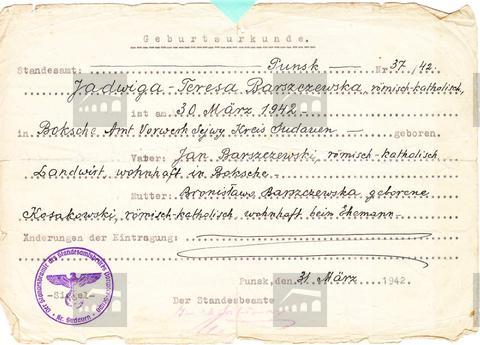 Geburtsurkunde.
Standesamt: Punsk Nr 37/42.
Jadwiga-Teresa Barszczewska, römisch-katholisch,
ist am 30 März 1942
in Boksche Amt Vorwerk Sejwy Kreis Sudauen geboren
Vater: Jan Barszczewski, römisch-katholisch
Landwirt, wohnhaft in Boksche
Mutter: Bronisława Barszczewska geborene
Kosakowski, römisch-katholisch, wohnhaft beim Ehemann
Änderungen der Eintragung:
Punsk, den 31. März 1942.
Der Standesbeamte
-Siegel-
Kr. Sudauen